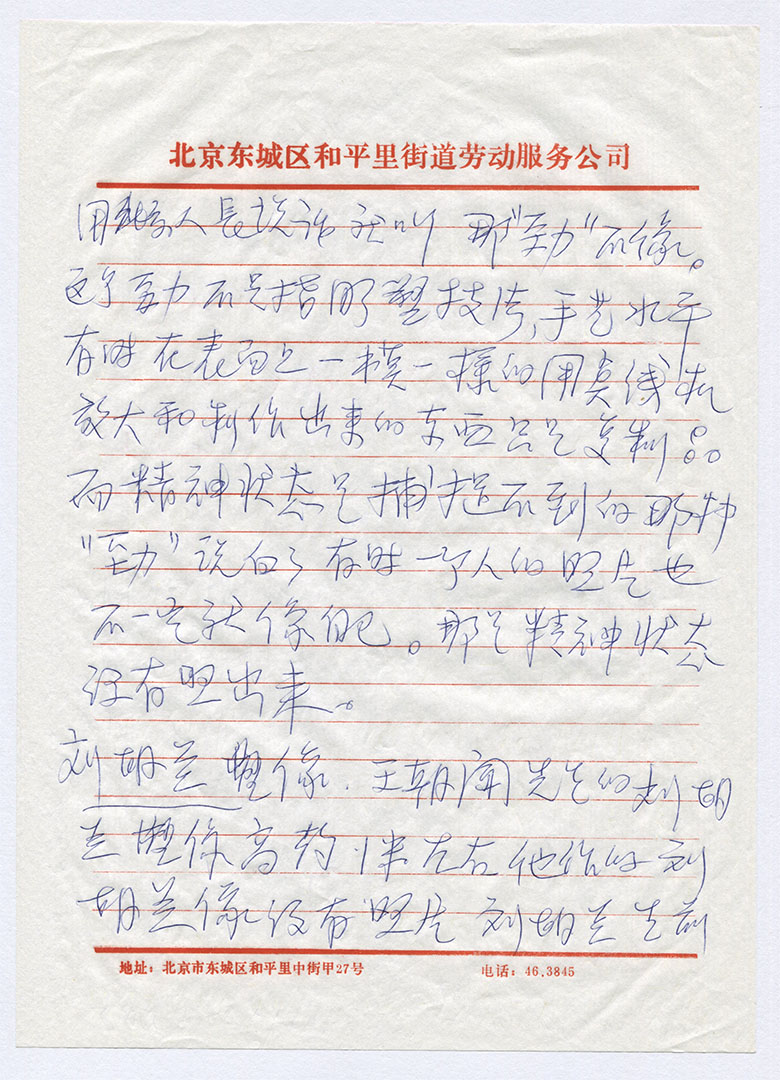 北京东城区和平里街道劳动服务公司
用北京人的说话就叫 那"劲"不像。
这个劲不是指雕塑技法,手艺水平
有时在表面上一模一样的用点线机
放大和制作出来的东西只是复制品
而精神状态是捕捉不到的那种
"劲"说白了有时一个人的照片也
不一定就像自己。那是精神状态
没有照出来。
刘胡兰塑像.王朝闻先生的刘胡
兰塑像高约1米左右他作的刘
胡兰像没有照片 刘胡兰生前
地址：北京市东城区和平里中街甲27号
电话：46.3845